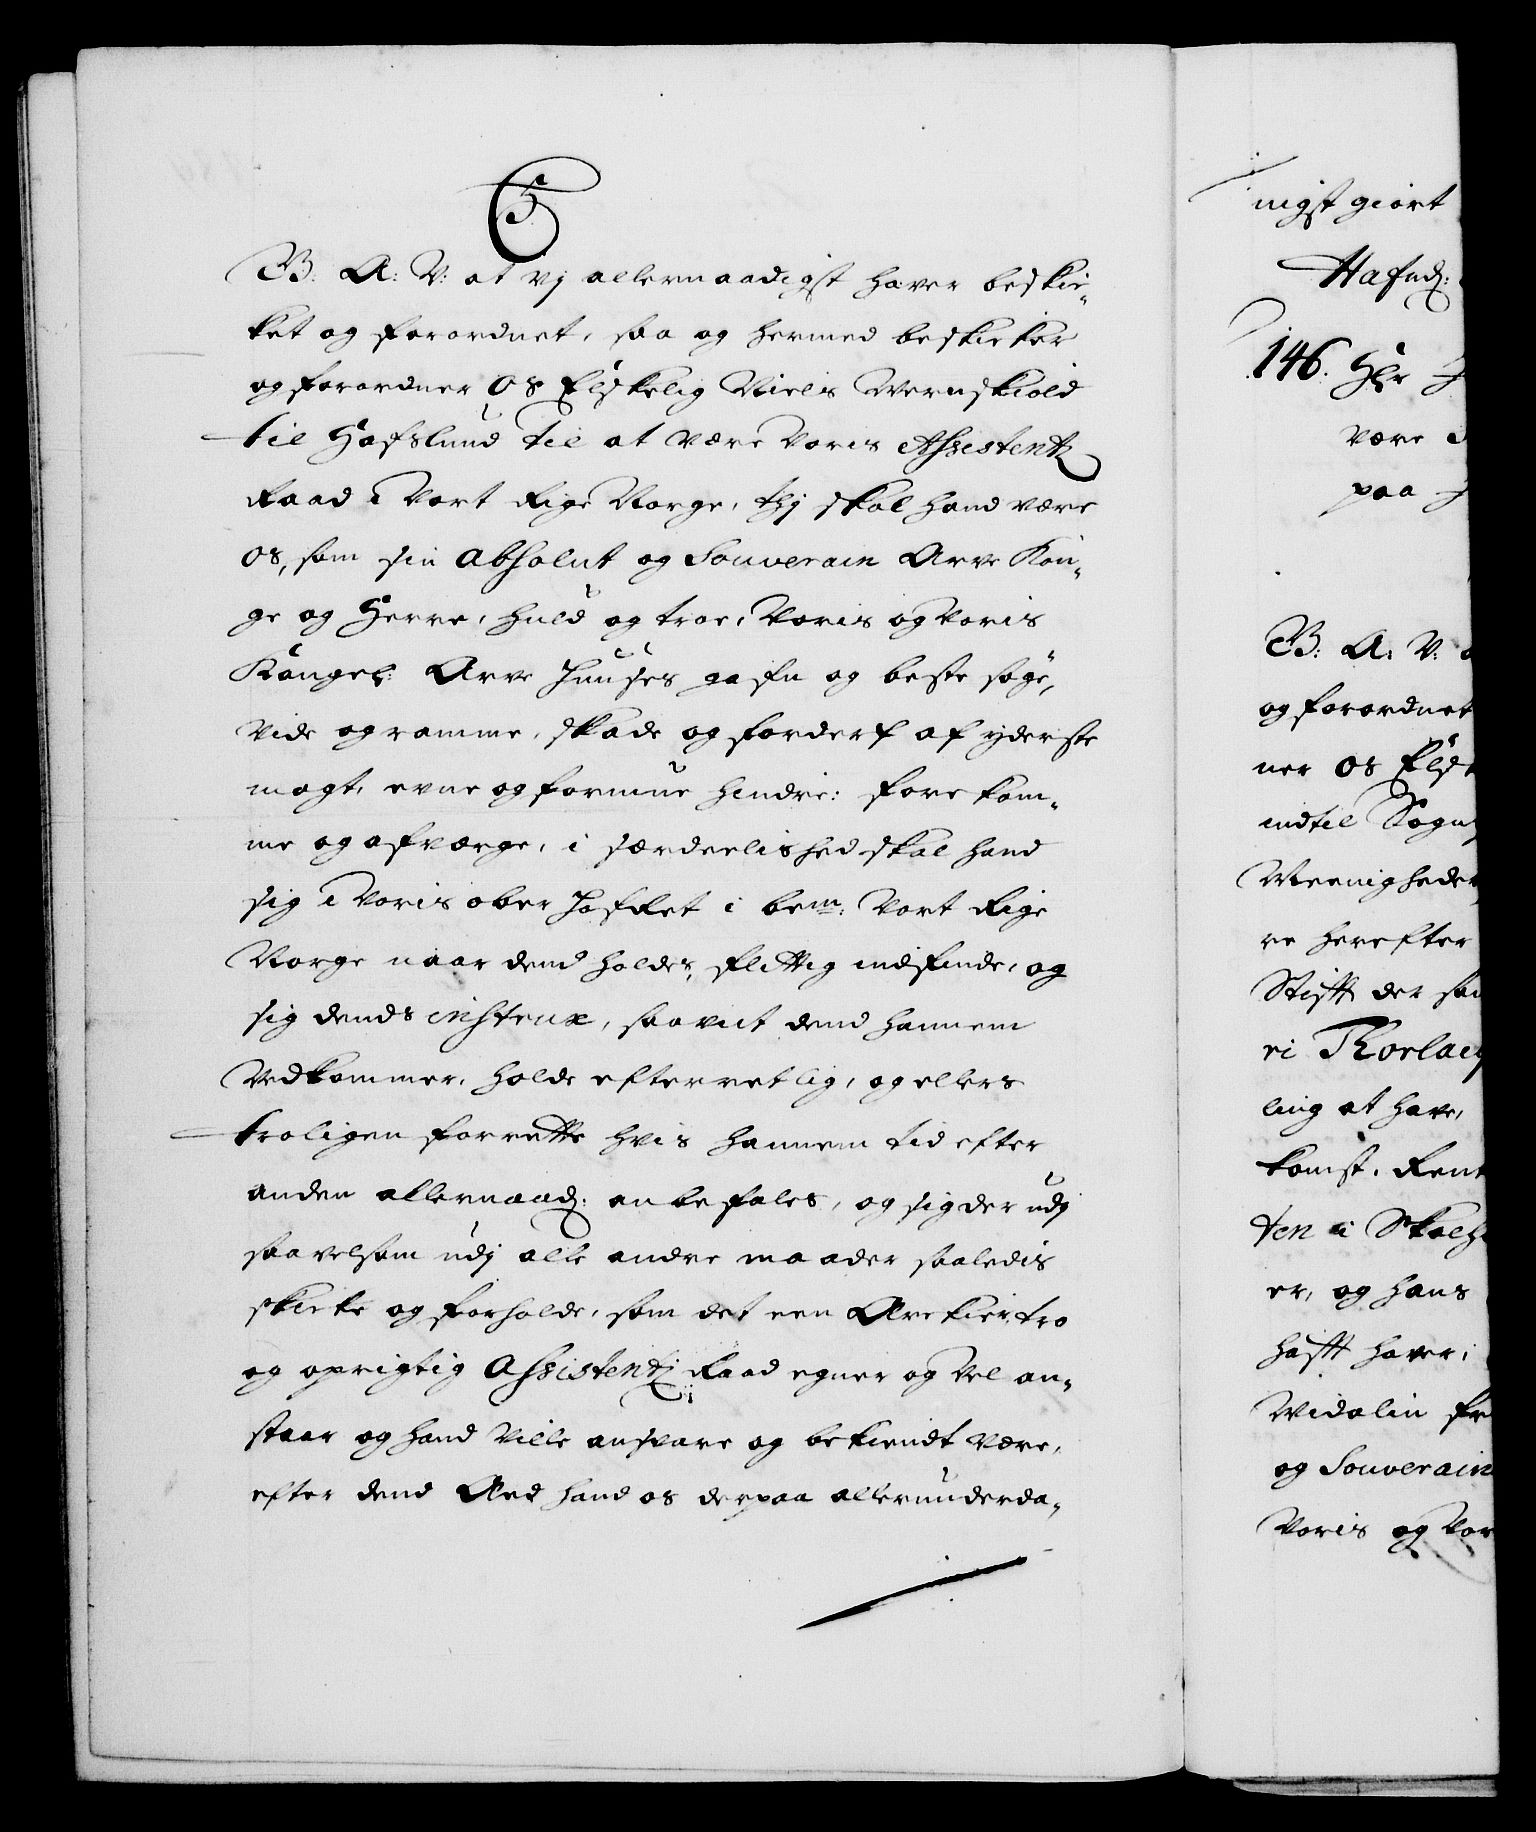 C5
B. A: V: at vj allernaadigst hafver beskic¬
ket og forordnet, saa og hermed beskicker
og forordner Os Elskelig Niels Wernskiold
til Hafslund til at være Voris Assistentz
Raad i Vort Rige Norge, thj skal hand være
os, som sin absolut og Souverain Arve Kon¬
ge og Herre, huld og troe, Voris og Voris
Kongel: Arve Huuses gafn og beste søge,
vide og ramme, skade og forderf af yderste
magt, evne og formue hindre: forekom¬
me og afværge, i særdeelished skal hand
sig i Voris ober HofRet i bem: Vort Rige
Norge naar dend holdes, flittig indfinde, og
sig dends instrux, saavit dend hannem
Vedkommer, holde efterretlig, og ellers
troligen forrette hvis hannem tid efter
anden allernaad: anbefales, og sig der udj
saavelsom udj alle andre maader saaledis
skicke og forholde, som det een Ærekier, tro
og oprigtig Assistentz Raad egner og vel an¬
staar og hand ville ansvare og bekiendt være,
efter dend Æed hand os derpaa allerunderda¬
nigst giort
Hafnd:
146. Hr
være
paa
B: A: V:
og forordnet
ner os Elsk
indtil Sogn
Meenigheder
re herefter
Stifft der som
ri Thorlac
ling at have,
komst, Rent
ten i Skalh
er, og hans
hafft haver,
Widalin
og Souverain
Voris og Vor